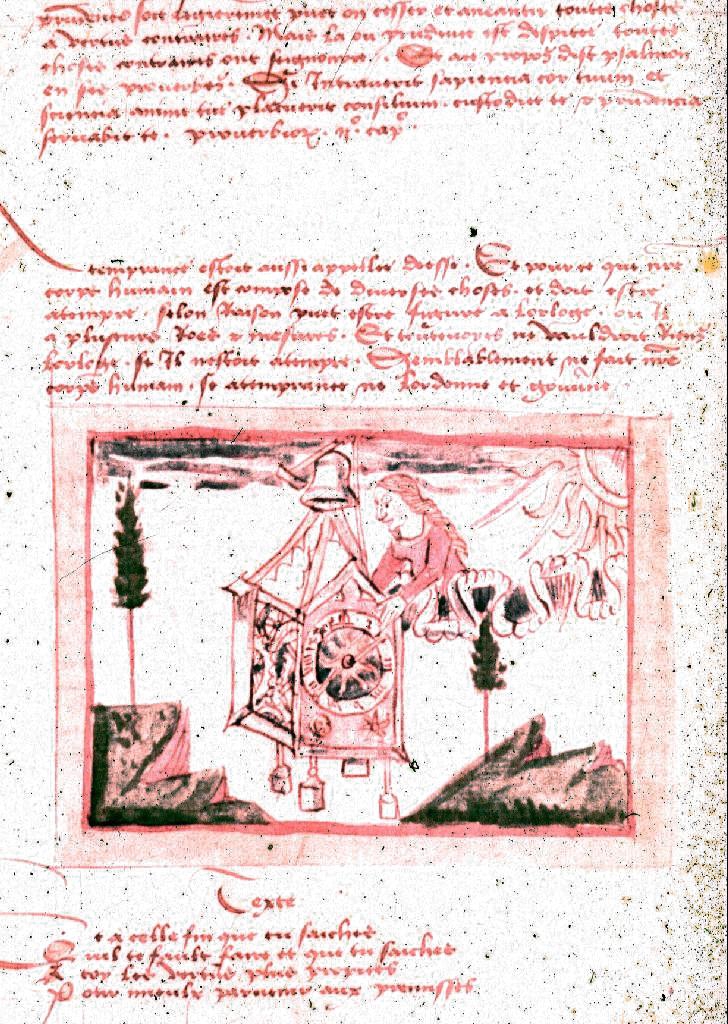 prudence soit ligierement puet on cesser et aneantir toutes choses
a vertus contraires. Mais la ou prudence est despitee toutes
choses contraires ont seignourie. Et a ce propos dist psalmon
en ses prouerbes. Si Intrauerit sapiencia cor tuum et
sciencia anime tue placuerit consilium custodiet te et prudencia
seruabit te. prouerbiorum. ii.º cap.º
temprance estoit aussi appellee deesse. Et pour ce que nre
corps humain est compose de diuerses choses et doit estre
atempre selon Raison puet estre figure a lorloge ou Il
a plusieurs Roes et mesures. Et touteuoyes ne vauldroit Riens
lorloge se Il nestoit atempre. Semblablement ne fait nre
corps humain se atemprance ne lordonne et gouuerne
Texte
t a celle fin que tu saiches
Quil te fault faire et que tu saches
A toy les vertus plus propices
Pour mieulx paruenir aux premisses